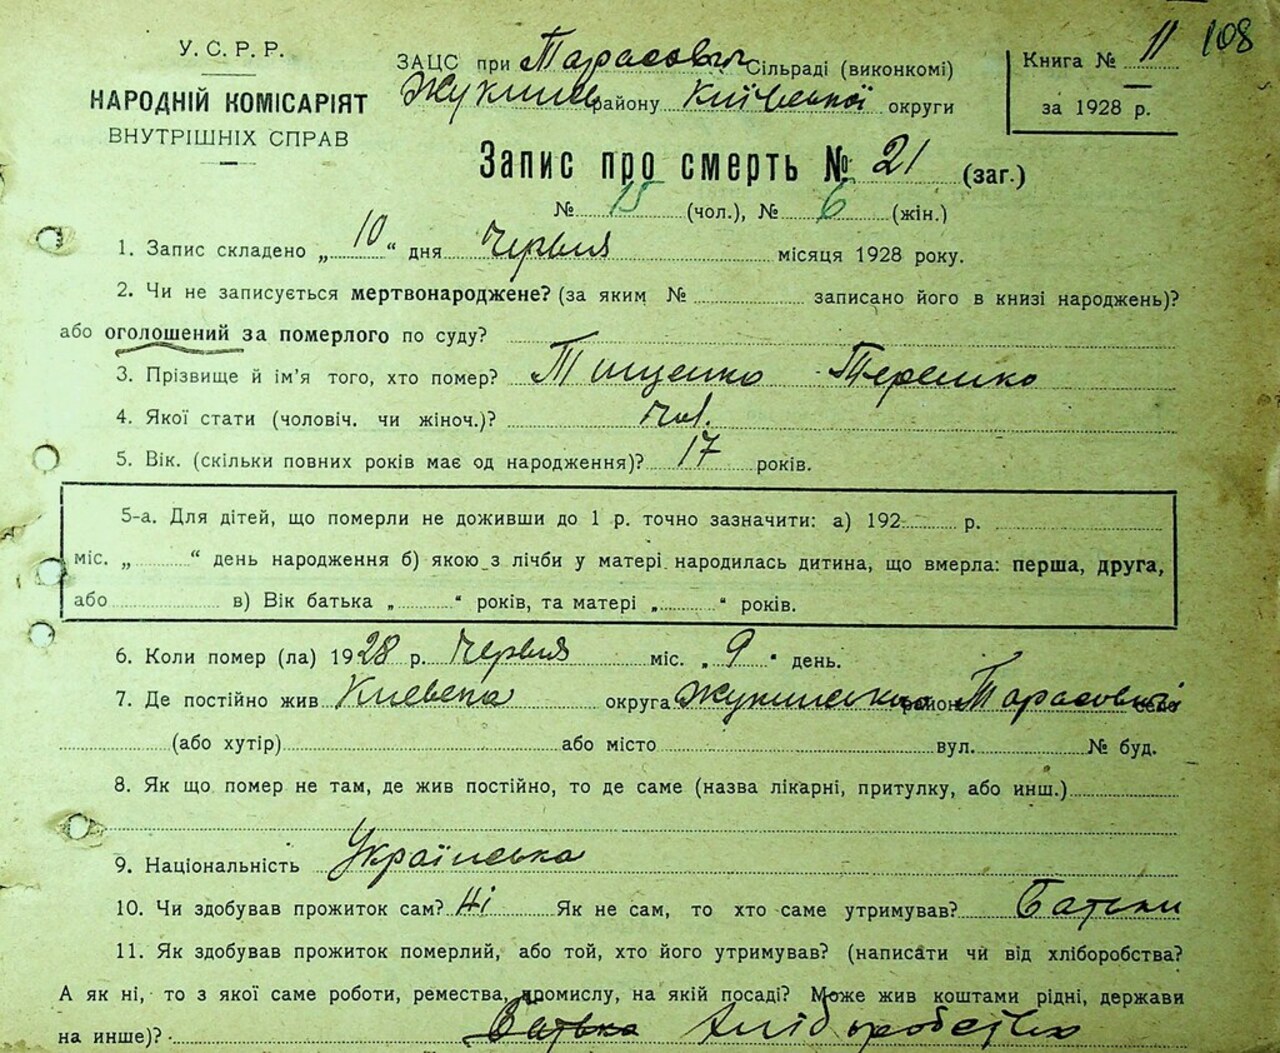 108
У. С. Р. Р.
НАРОДНІЙ КОМІСАРІЯТ
ВНУТРІШНІХ СПРАВ
ЗАЦС при Тарасовій Сільраді (виконкомі)
району Київської округи
Книга № 11
за 1928 р.
Запис про смерть № 21 (заг.)
№ 15 (чол.), № 6 (жін.)
1. Запис складено „ 10 “ дня Червня місяця 1928 року.
2. Чи не записується мертвонароджене? (за яким № записано його в книзі народжень)?
або оголошений за померлого по суду?
3. Прізвище й ім’я того, хто помер? Тищенко Терешко
4. Якої стати (чоловіч. чи жіноч.)? чол.
5. Вік. (скільки повних років має од народження)? 17 років.
5-а. Для дітей, що померли не доживши до 1 р. точно зазначити: а) 192 р.
міс. „ “ день народження б) якою з лічби у матері народилась дитина, що вмерла: перша, друга,
або в) Вік батька „ “ років, та матері „ “ років.
6. Коли помер (ла) 1928 р. Червня міс. „ 9 “ день.
7. Де постійно жив округа район село
(або хутір) або місто вул. № буд.
8. Як що помер не там, де жив постійно, то де саме (назва лікарні, притулку, або инш.)
9. Національність Українська
10. Чи здобував прожиток сам? Ні Як не сам, то хто саме утримував? Батьки
11. Як здобував прожиток померлий, або той, хто його утримував? (написати чи від хліборобства?
А як ні, то з якої саме роботи, ремества, промислу, на якій посаді? Може жив коштами рідні, держави
на инше)? Батька Хліборобство